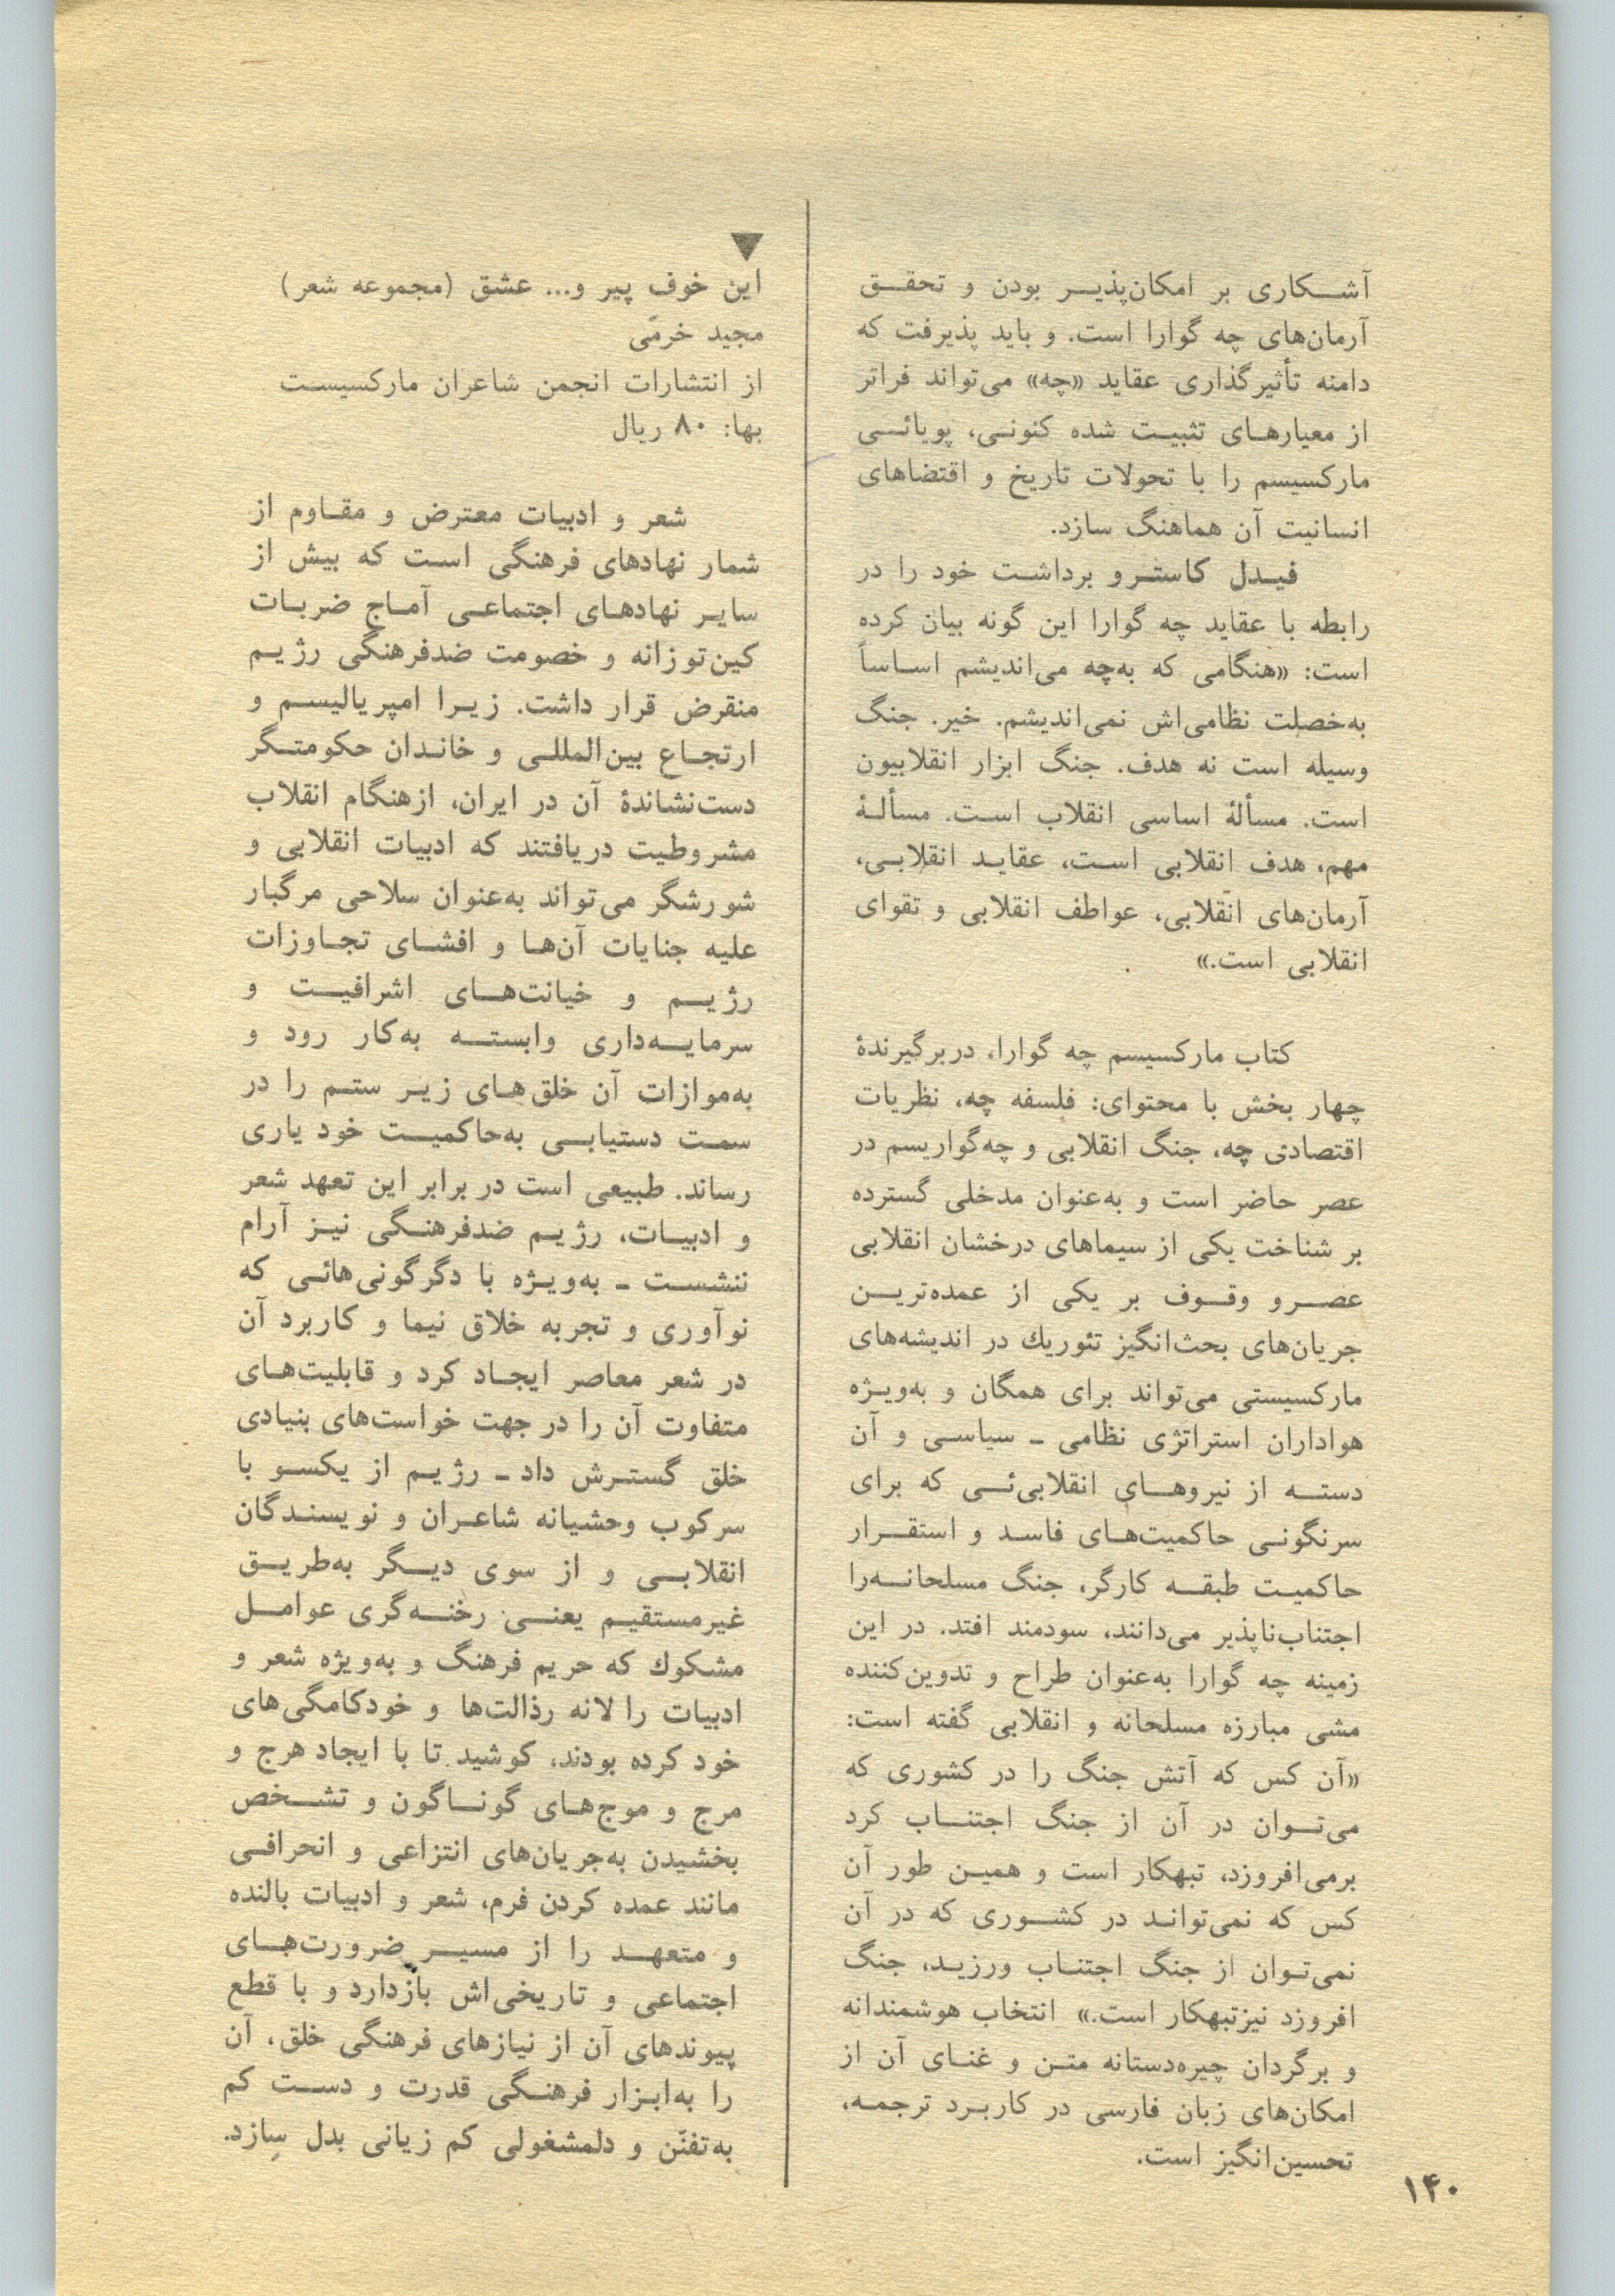 آشکاری بر امکان‌پذیر بودن و تحقق
آرمان‌های چه گوارا است. و باید پذیرفت که
دامنه تأثیرگذاری عقاید «چه» می‌تواند فراتر
از معیارهای تثبیت شده کنونی، پویائی
مارکسیسم را با تحولات تاریخ و اقتضاهای
انسانیت آن هماهنگ سازد.
فیدل کاسترو برداشت خود را در
رابطه با عقاید چه گوارا این گونه بیان کرده
است: «هنگامی که به‌چه می‌اندیشم اساساً
به‌خصلت نظامی‌اش نمی‌اندیشم. خیر. جنگ
وسیله است نه هدف. جنگ ابزار انقلابیون
است. مسألهٔ اساسی انقلاب است. مسألهٔ
مهم، هدف انقلابی است، عقاید انقلابی،
آرمان‌های انقلابی، عواطف انقلابی و تقوای
انقلابی است.»
کتاب مارکسیسم چه گوارا، دربرگیرندهٔ
چهار بخش با محتوای: فلسفه چه، نظریات
اقتصادی چه، جنگ انقلابی و چه‌گواریسم در
عصر حاضر است و به‌عنوان مدخلی گسترده
بر شناخت یکی از سیماهای درخشان انقلابی
عصر و وقوف بر یکی از عمده‌ترین
جریان‌های بحث‌انگیز تئوریك در اندیشه‌های
مارکسیستی می‌تواند برای همگان و به‌ویژه
هواداران استراتژی نظامی ـ سیاسی و آن
دسته از نیروهای انقلابی‌ئی که برای
سرنگونی حاکمیت‌های فاسد و استقرار
حاکمیت طبقه کارگر، جنگ مسلحانه‌را
اجتناب‌ناپذیر می‌دانند، سودمند افتد. در این
زمینه چه گوارا به‌عنوان طراح و تدوین‌کننده
مشی مبارزه مسلحانه و انقلابی گفته است:
«آن کس که آتش جنگ را در کشوری که
می‌توان در آن از جنگ اجتناب کرد
برمی‌افروزد، تبهکار است و همین طور آن
کس که نمی‌تواند در کشوری که در آن
نمی‌توان از جنگ اجتناب ورزید، جنگ
افروزد نیزتبهکار است.» انتخاب هوشمندانه
و برگردان چیره‌دستانه متن و غنای آن از
امکان‌های زبان فارسی در کاربرد ترجمه،
تحسین‌انگیز است.
▼
این خوف پیر و... عشق (مجموعه شعر)
مجید خرمّی
از انتشارات انجمن شاعران مارکسیست
بها: ۸۰ ریال
شعر و ادبیات معترض و مقاوم از
شمار نهادهای فرهنگی است که بیش از
سایر نهادهای اجتماعی آماج ضربات
کین‌توزانه و خصومت ضدفرهنگی رژیم
منقرض قرار داشت. زیرا امپریالیسم و
ارتجاع بین‌المللی و خاندان حکومتگر
دست‌نشاندهٔ آن در ایران، ازهنگام انقلاب
مشروطیت دریافتند که ادبیات انقلابی و
شورشگر می‌تواند به‌عنوان سلاحی مرگبار
علیه جنایات آن‌ها و افشای تجاوزات
رژیم و خیانت‌های اشرافیت و
سرمایه‌داری وابسته به‌کار رود و
به‌موازات آن خلق‌های زیر ستم را در
سمت دستیابی به‌حاکمیت خود یاری
رساند. طبیعی است در برابر این تعهد شعر
و ادبیات، رژیم ضدفرهنگی نیز آرام
ننشست ـ به‌ویژه با دگرگونی‌هائی که
نوآوری و تجربه خلاق نیما و کاربرد آن
در شعر معاصر ایجاد کرد و قابلیت‌های
متفاوت آن را در جهت خواست‌های بنیادی
خلق گسترش داد ـ رژیم از یکسو با
سرکوب وحشیانه شاعران و نویسندگان
انقلابی و از سوی دیگر به‌طریق
غیرمستقیم یعنی رخنه‌گری عوامل
مشکوك که حریم فرهنگ و به‌ویژه شعر و
ادبیات را لانه رذالت‌ها و خودکامگی‌های
خود کرده بودند، کوشید تا با ایجاد هرج و
مرج و موج‌های گوناگون و تشخص
بخشیدن به‌جریان‌های انتزاعی و انحرافی
مانند عمده کردن فرم، شعر و ادبیات بالنده
و متعهد را از مسیر ضرورت‌های
اجتماعی و تاریخی‌اش بازدارد و با قطع
پیوندهای آن از نیازهای فرهنگی خلق، آن
را به‌ابزار فرهنگی قدرت و دست کم
به‌تفنّن و دلمشغولی کم زیانی بدل سازد.
۱۴۰